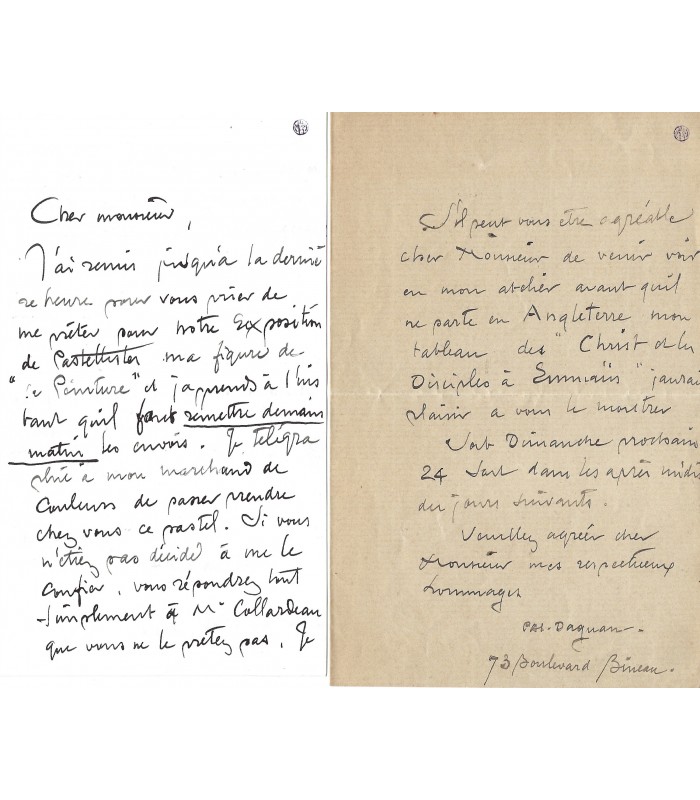 Cher monsieur,
J'ai remis jusqu'à la derniè
re heure pour vous prier de
me prêter pour notre Exposition
de Pastellistes ma figure de
"la Peinture" et j'apprends à l'ins
tant qu'il faut remettre demain
matin les envois. Je télégra
phie à mon marchand de
couleurs de passer prendre
chez vous ce pastel. Si vous
n'étiez pas décidé à me le
confier, vous répondrez tout
simplement à Mr Collardeau
que vous ne le prêtez pas. Je
S'il peut vous être agréable
cher Monsieur de venir voir
en mon atelier avant qu'il
ne parte en Angleterre mon
tableau des "Christ et les
Disciples à Emmaüs" j'aurai
plaisir a vous le montrer
soit Dimanche prochain
24 soit dans les après midi
des jours suivants.
Veuillez agréer cher
Monsieur mes respectueux
hommages
PAJ. Dagnan.
73 Boulevard Bineau.